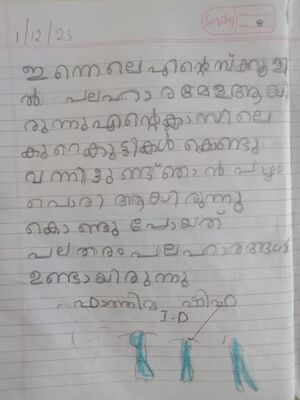 1/12/23
ഇന്നെലെ എന്റെ സ്ക്കൂളി
ൽ പലഹാരമേള ആയി
രുന്നു എന്റെ ക്ലാസിലെ
കുറെ കുട്ടികൾ കൊണ്ടു
വന്നിട്ടുണ്ട് ഞാൻ പഴം
പൊരി ആയിരുന്നു
കൊണ്ടു പോയത്
പലതരം പലഹാരങ്ങൾ
ഉണ്ടായിരുന്നു
ഫാത്തിമ
I.D